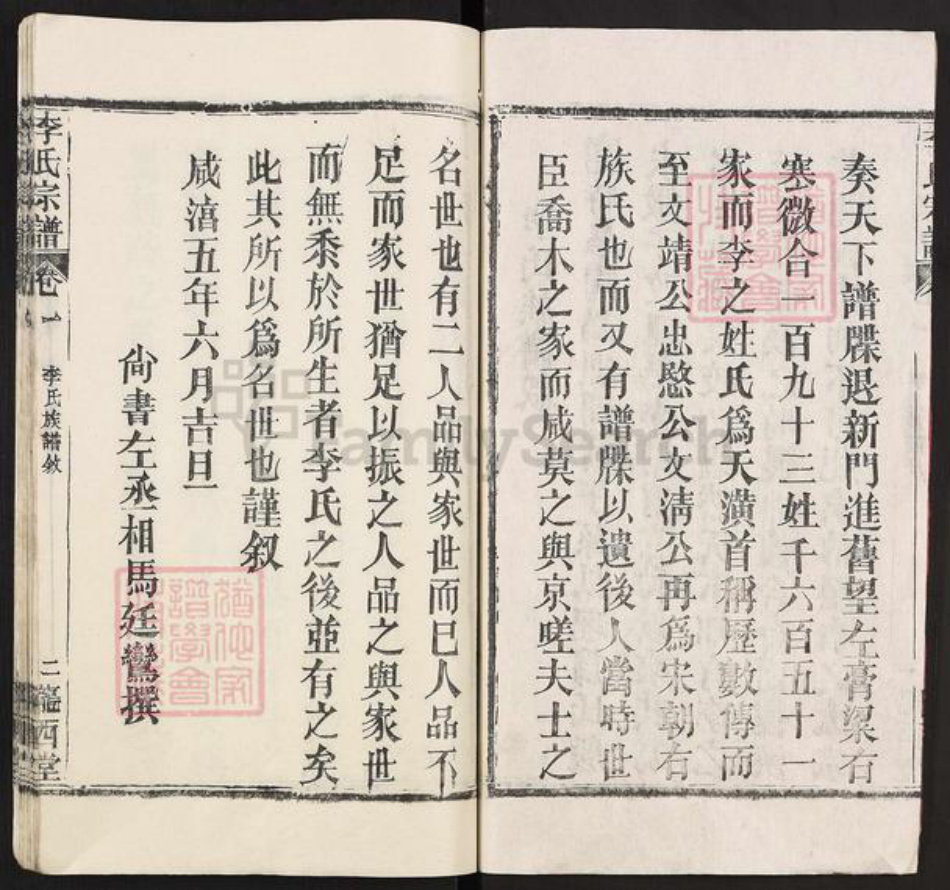 奏天下譜牒退新門進舊望左膏梁右
寒微合一百九十三姓千六百五十一
家而李之姓氏爲天潢首稱歷數傳而
至文靖公忠愍公文清公再爲宋朝右
族氏也而又有譜牒以遺後人當時世
臣喬木之家而咸莫之與京嗟夫士之
名世也有二人品與家世而巳人品不
足而家世猶足以振之人品之與家世
而無忝於所生者李氏之後並有之矣
此其所以爲名世也謹叙
咸淳五年六月吉旦
尚書左丞相馬廷鸞撰
李氏宗譜 卷一 李氏族譜敘 二 隴西堂
FamilySearch